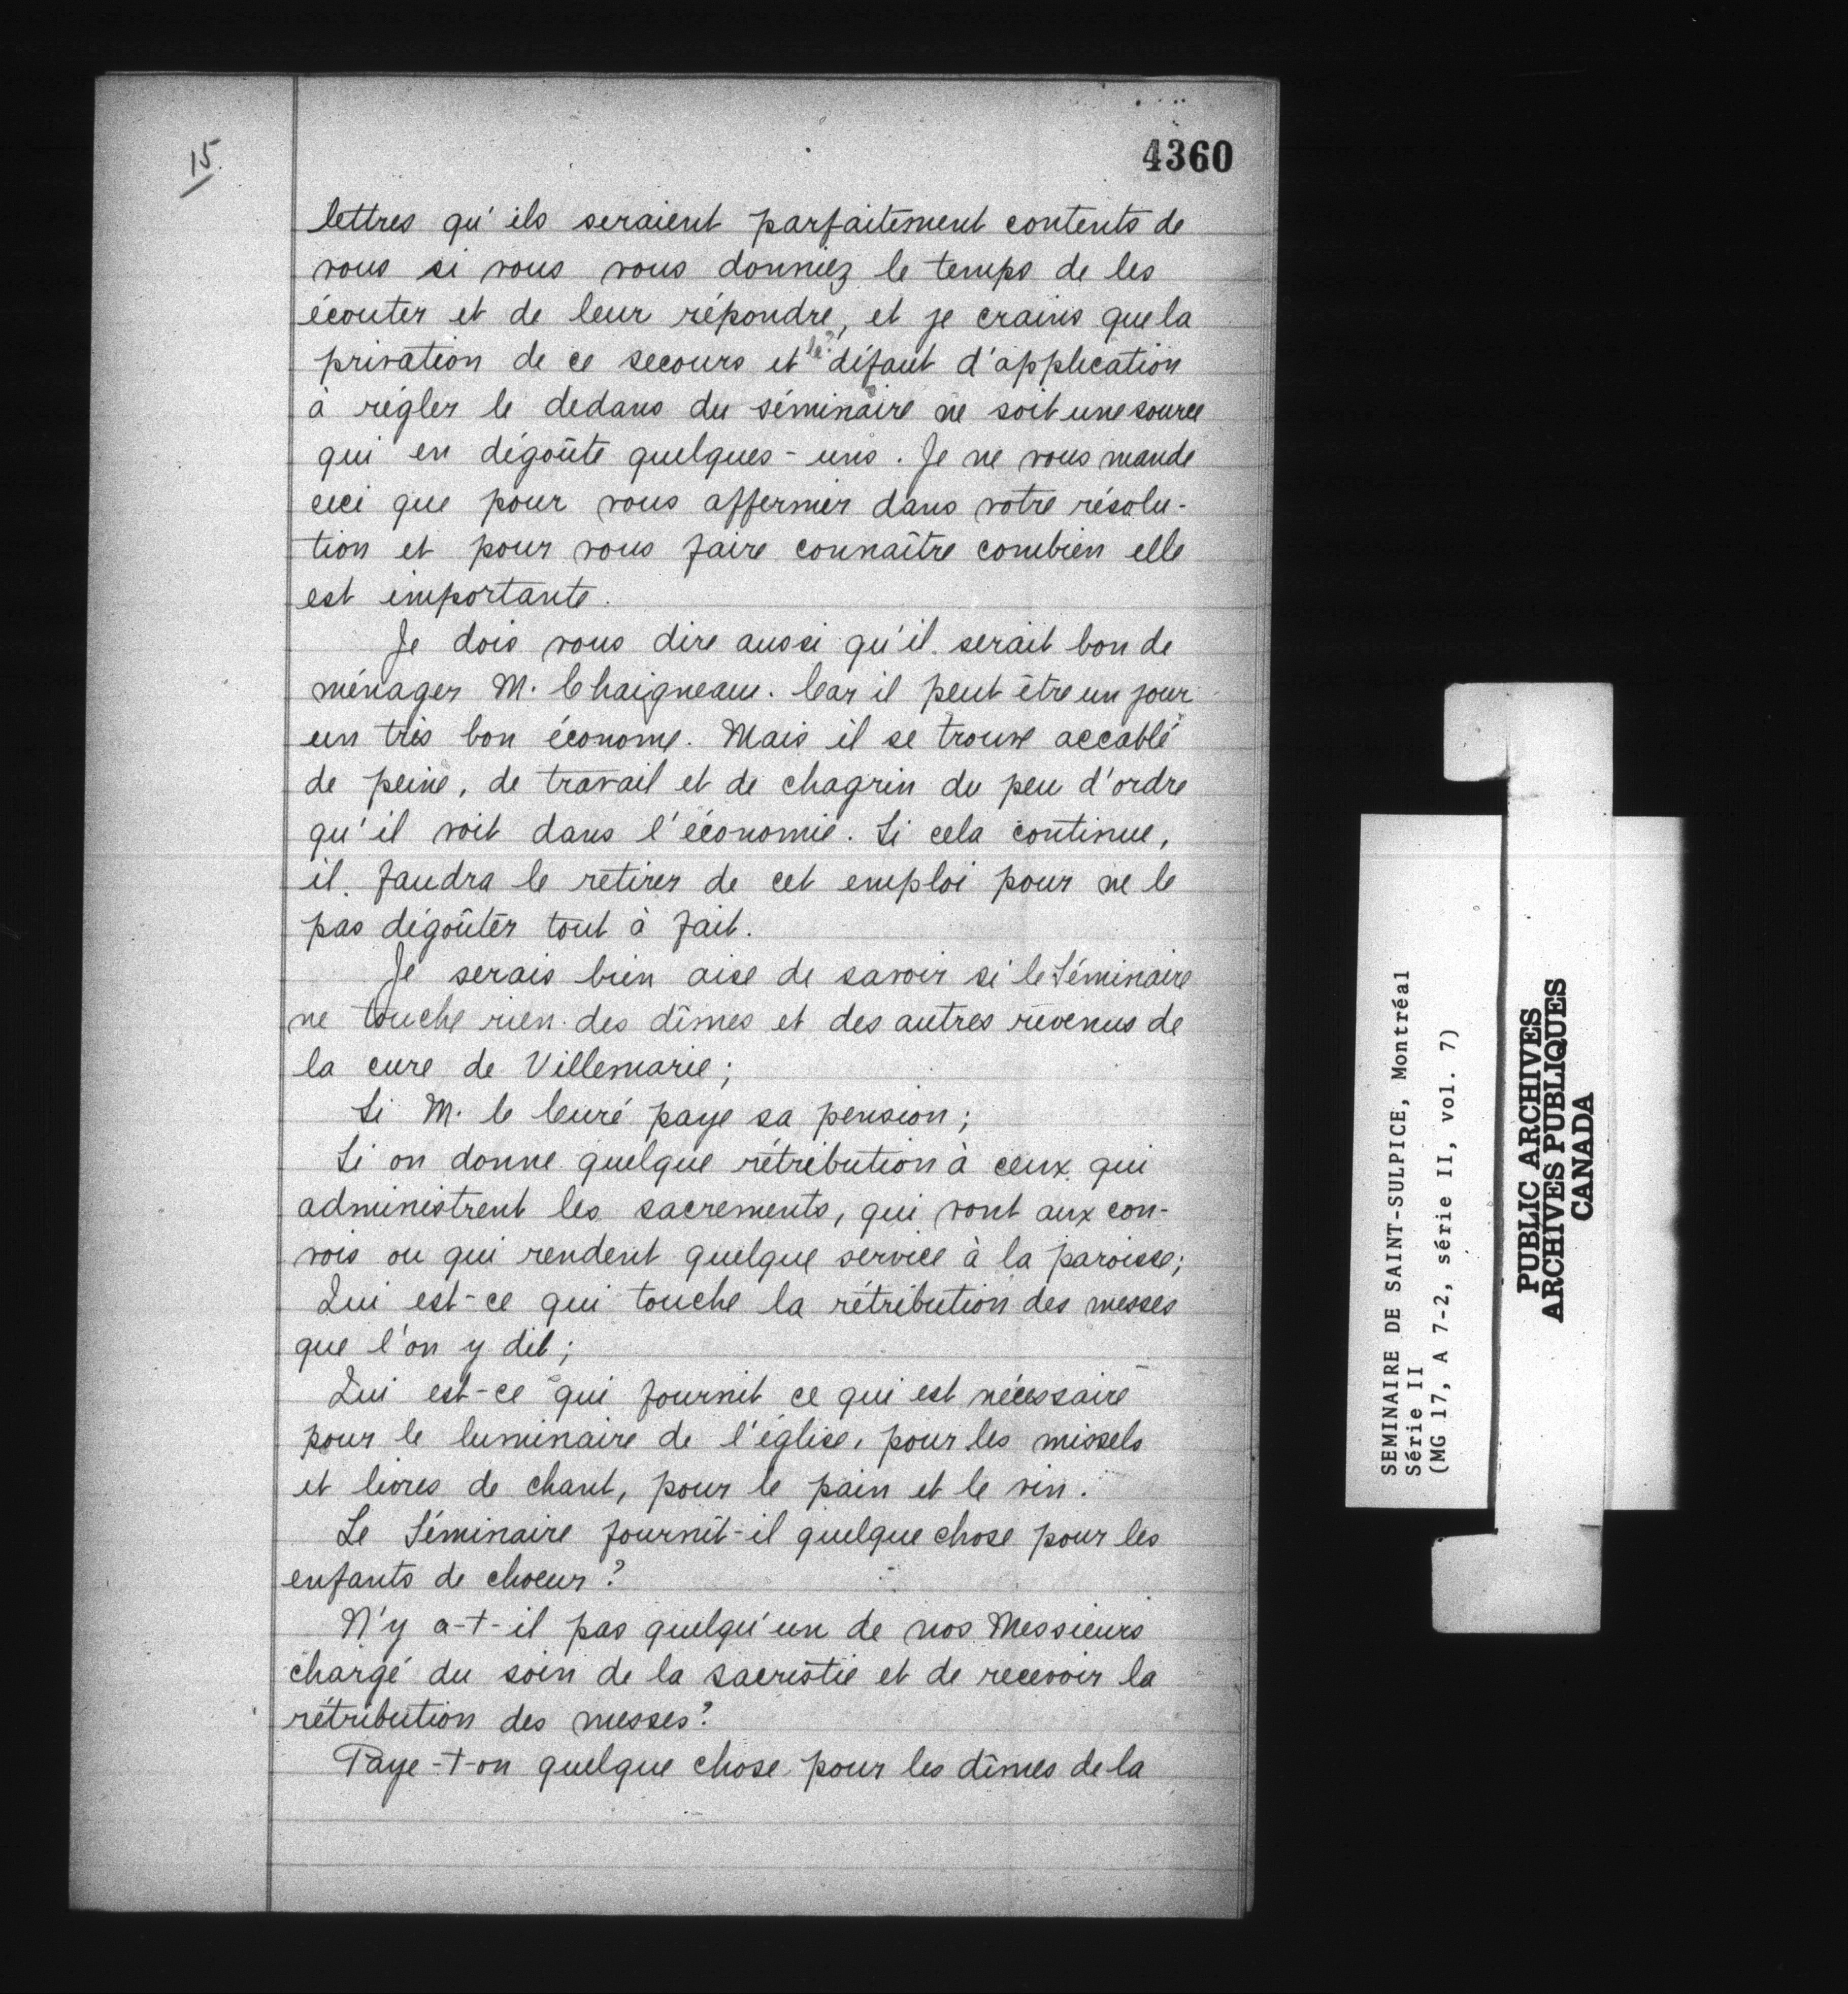 15.
4360
lettres qu'ils seraient parfaitement contents de
vous si vous vous donniez le temps de les
écouter et de leur répondre, et je crains que la
privation de ce secours et le? défaut d'application
à régler le dedans du séminaire ne soit une source
qui en dégoûte quelques-uns. Je ne vous mande
ceci que pour vous affermir dans votre résolu-
tion et pour vous faire connaître combien elle
est importante.
Je dois vous dire aussi qu'il serait bon de
ménager M. Chaigneau. Car il peut être un jour
un très bon économe. Mais il se trouve accablé
de peine, de travail et de chagrin du peu d'ordre
qu'il voit dans l'économie. Si cela continue,
il faudra le retirer de cet emploi pour ne le
pas dégoûter tout à fait.
Je serais bien aise de savoir si le Séminaire
ne touche rien des dîmes et des autres revenus de
la cure de Villemarie;
Si M. le Curé paye sa pension;
Si on donne quelque rétribution à ceux qui
administrent les sacrements, qui vont aux con-
vois ou qui rendent quelque service à la paroisse;
Qui est-ce qui touche la rétribution des messes
que l'on y dit;
Qui est-ce qui fournit ce qui est nécessaire
pour le luminaire de l'église, pour les missels
et livres de chant, pour le pain et le vin.
Le Séminaire fournit-il quelque chose pour les
enfants de choeur?
N'y a-t-il pas quelqu'un de nos Messieurs
chargé du soin de la sacristie et de recevoir la
rétribution des messes?
Paye-t-on quelque chose pour les dîmes de la
SEMINAIRE DE SAINT-SULPICE, Montréal
Série II
(MG 17, A 7-2, série II, vol. 7)
PUBLIC ARCHIVES
ARCHIVES PUBLIQUES
CANADA